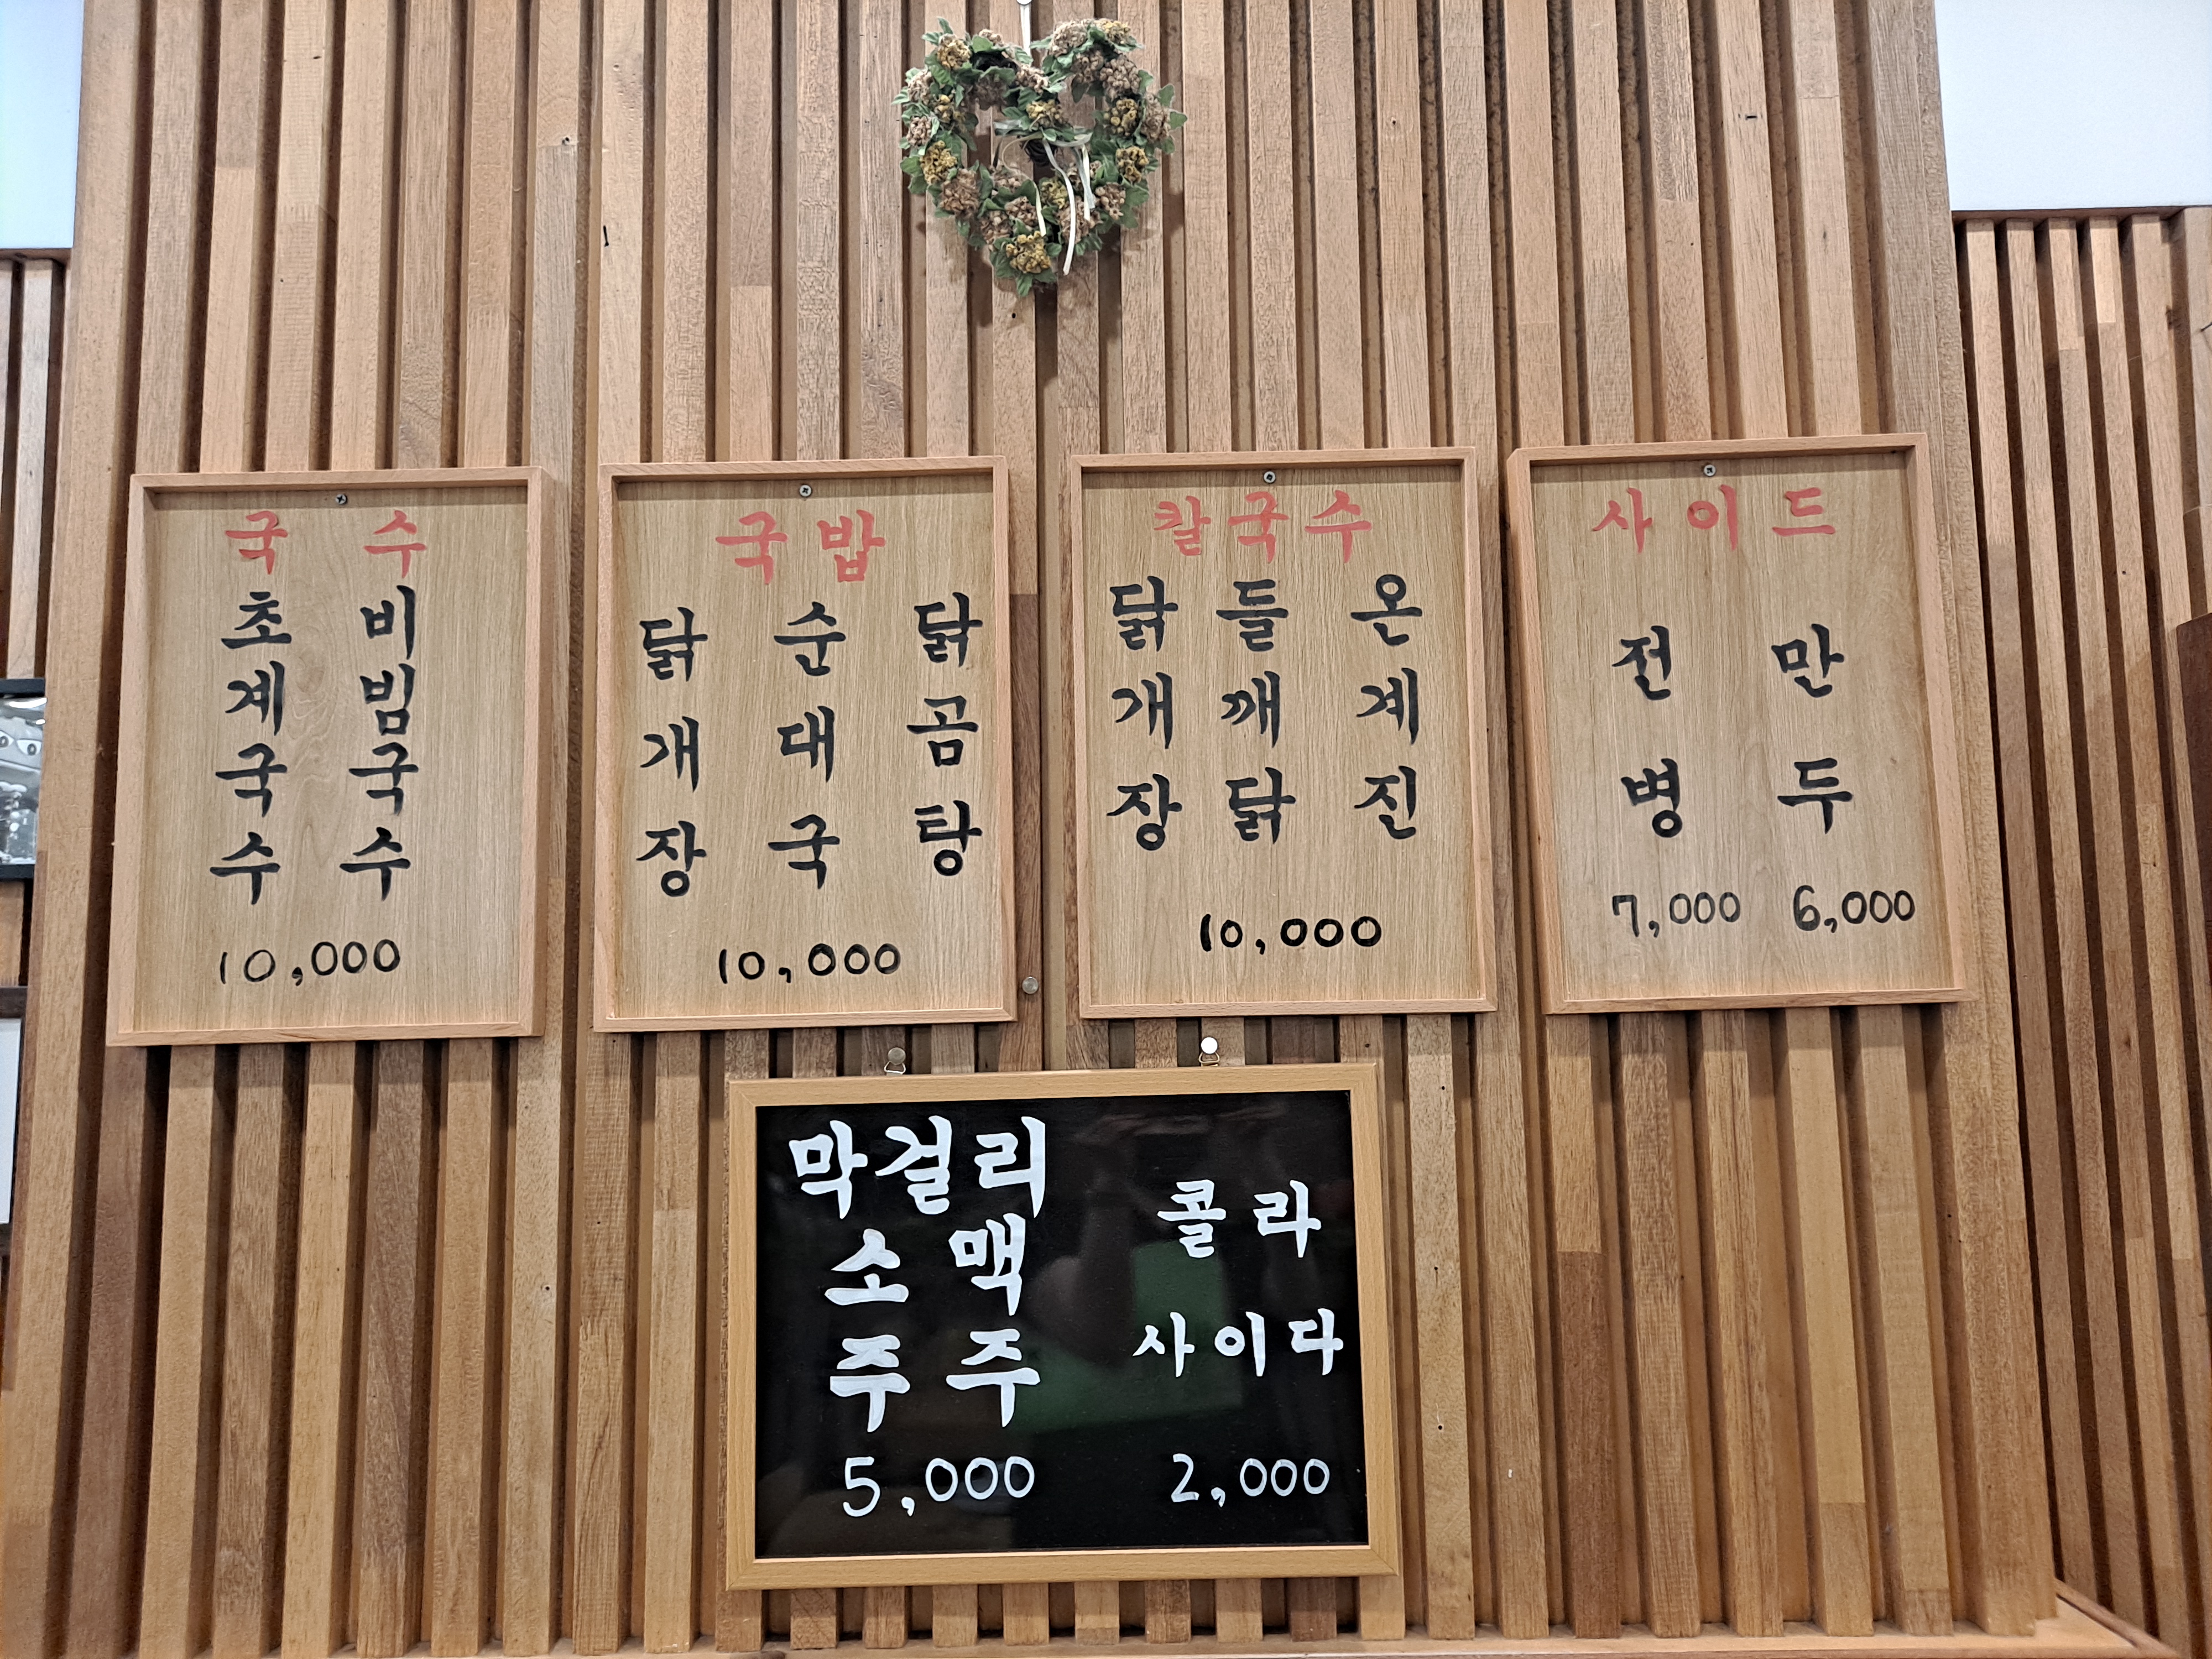 국수
초계국수
비빔국수
10,000
국밥
닭개장
순대국
닭곰탕
10,000
칼국수
닭개장
들깨닭
온계진
10,000
사이드
전병
만두
7,000 6,000
막걸리
소주
맥주
5,000
콜라
사이다
2,000